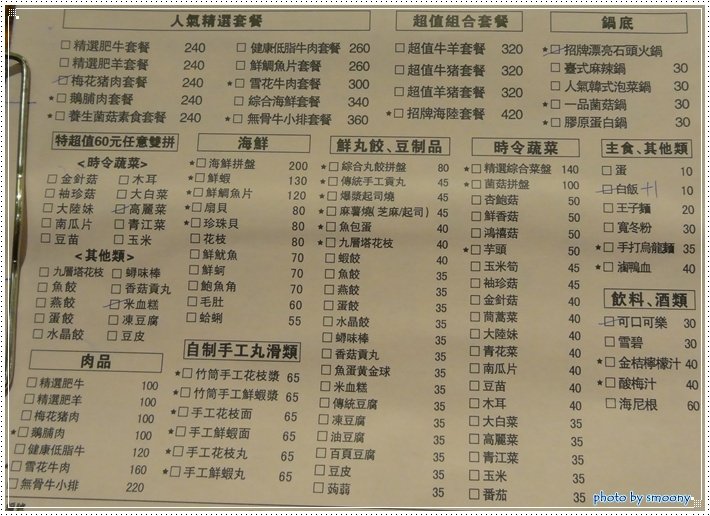 人氣精選套餐
□精選肥牛套餐 240
□精選肥羊套餐 240
□梅花豬肉套餐 240
★□鵝脯肉套餐 240
★□養生菌菇素食套餐 240
□健康低脂牛肉套餐 260
□鮮鯛魚片套餐 260
★□雪花牛肉套餐 300
□綜合海鮮套餐 340
★□無骨牛小排套餐 360
超值組合套餐
□超值牛羊套餐 320
□超值牛豬套餐 320
□超值羊豬套餐 320
★□招牌海陸套餐 420
鍋底
★□招牌漂亮石頭火鍋
□臺式麻辣鍋 30
□人氣韓式泡菜鍋 30
★□一品菌菇鍋 30
★□膠原蛋白鍋 30
特超值60元任意雙拼
<時令蔬菜>
□金針菇 □木耳
□袖珍菇 □大白菜
□大陸妹 □高麗菜
□南瓜片 □青江菜
□豆苗 □玉米
<其他類>
□九層塔花枝 □蟳味棒
□魚餃 □香菇貢丸
□燕餃 □米血糕
□蛋餃 □凍豆腐
□水晶餃 □豆皮
肉品
□精選肥牛 100
□精選肥羊 100
□梅花豬肉 100
★□鵝脯肉 100
□健康低脂牛 120
★□雪花牛肉 160
□無骨牛小排 220
海鮮
★□海鮮拼盤 200
★□鮮蝦 130
★□鮮鯛魚片 120
★□扇貝 80
★□珍珠貝 80
□花枝 80
□鮮魷魚 70
□鮮蚵 70
□鮑魚角 70
□毛肚 60
□蛤蜊 55
自制手工丸滑類
★□竹筒手工花枝漿 65
★□竹筒手工鮮蝦漿 65
★□手工花枝面 65
★□手工鮮蝦面 65
★□手工花枝丸 65
★□手工鮮蝦丸 65
鮮丸餃、豆制品
★□綜合丸餃拼盤 80
★□傳統手工貢丸 45
★□爆漿起司燒 45
★□麻薯燒(芝麻/起司) 45
★□魚包蛋 40
★□九層塔花枝 40
□蝦餃 40
□魚餃 35
□燕餃 35
□蛋餃 35
□水晶餃 35
□蟳味棒 35
□香菇貢丸 35
□魚蛋黃金球 35
□米血糕 35
□傳統豆腐 35
□凍豆腐 35
□油豆腐 35
□百頁豆腐 35
□豆皮 35
□蒟蒻 35
時令蔬菜
★□精選綜合菜盤 140
★□菌菇拼盤 100
□杏鮑菇 50
□鮮香菇 50
□鴻禧菇 50
★□芋頭 50
□玉米筍 45
□袖珍菇 45
□金針菇 40
□茼蒿菜 40
□大陸妹 40
□青花菜 40
□南瓜片 40
□豆苗 40
□木耳 40
□大白菜 35
□高麗菜 35
□青江菜 35
□玉米 35
□番茄 35
主食、其他類
□蛋 10
□白飯 +1 10
□王子麵 20
□寬冬粉 30
★□手打烏龍麵 35
★□滷鴨血 40
飲料、酒類
□可口可樂 30
□雪碧 30
★□金桔檸檬汁 40
★□酸梅汁 40
□海尼根 60
photo by smoony